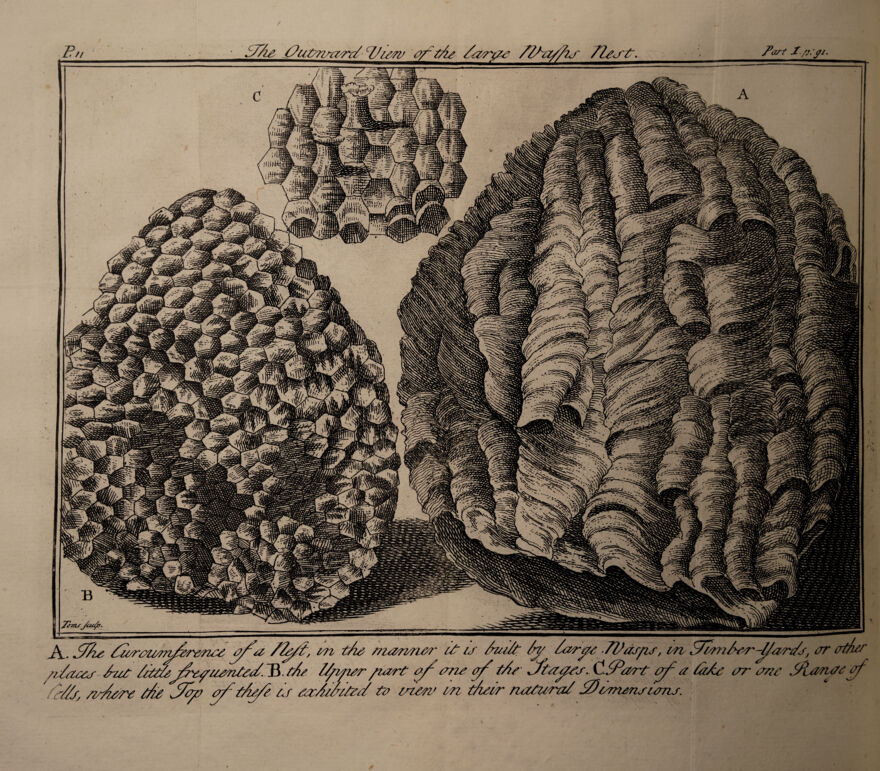 P. 11 The Outward View of the large Waſps Nest. Part I. p. 91.
C
A
B
Toms sculp.
A. The Circumference of a Neſt, in the manner it is built by large Waſps, in Timber-Yards, or other
places but little frequented. B. the Upper part of one of the Stages. C. Part of a Cake or one Range of
Cells, where the Top of theſe is exhibited to view in their natural Dimensions.